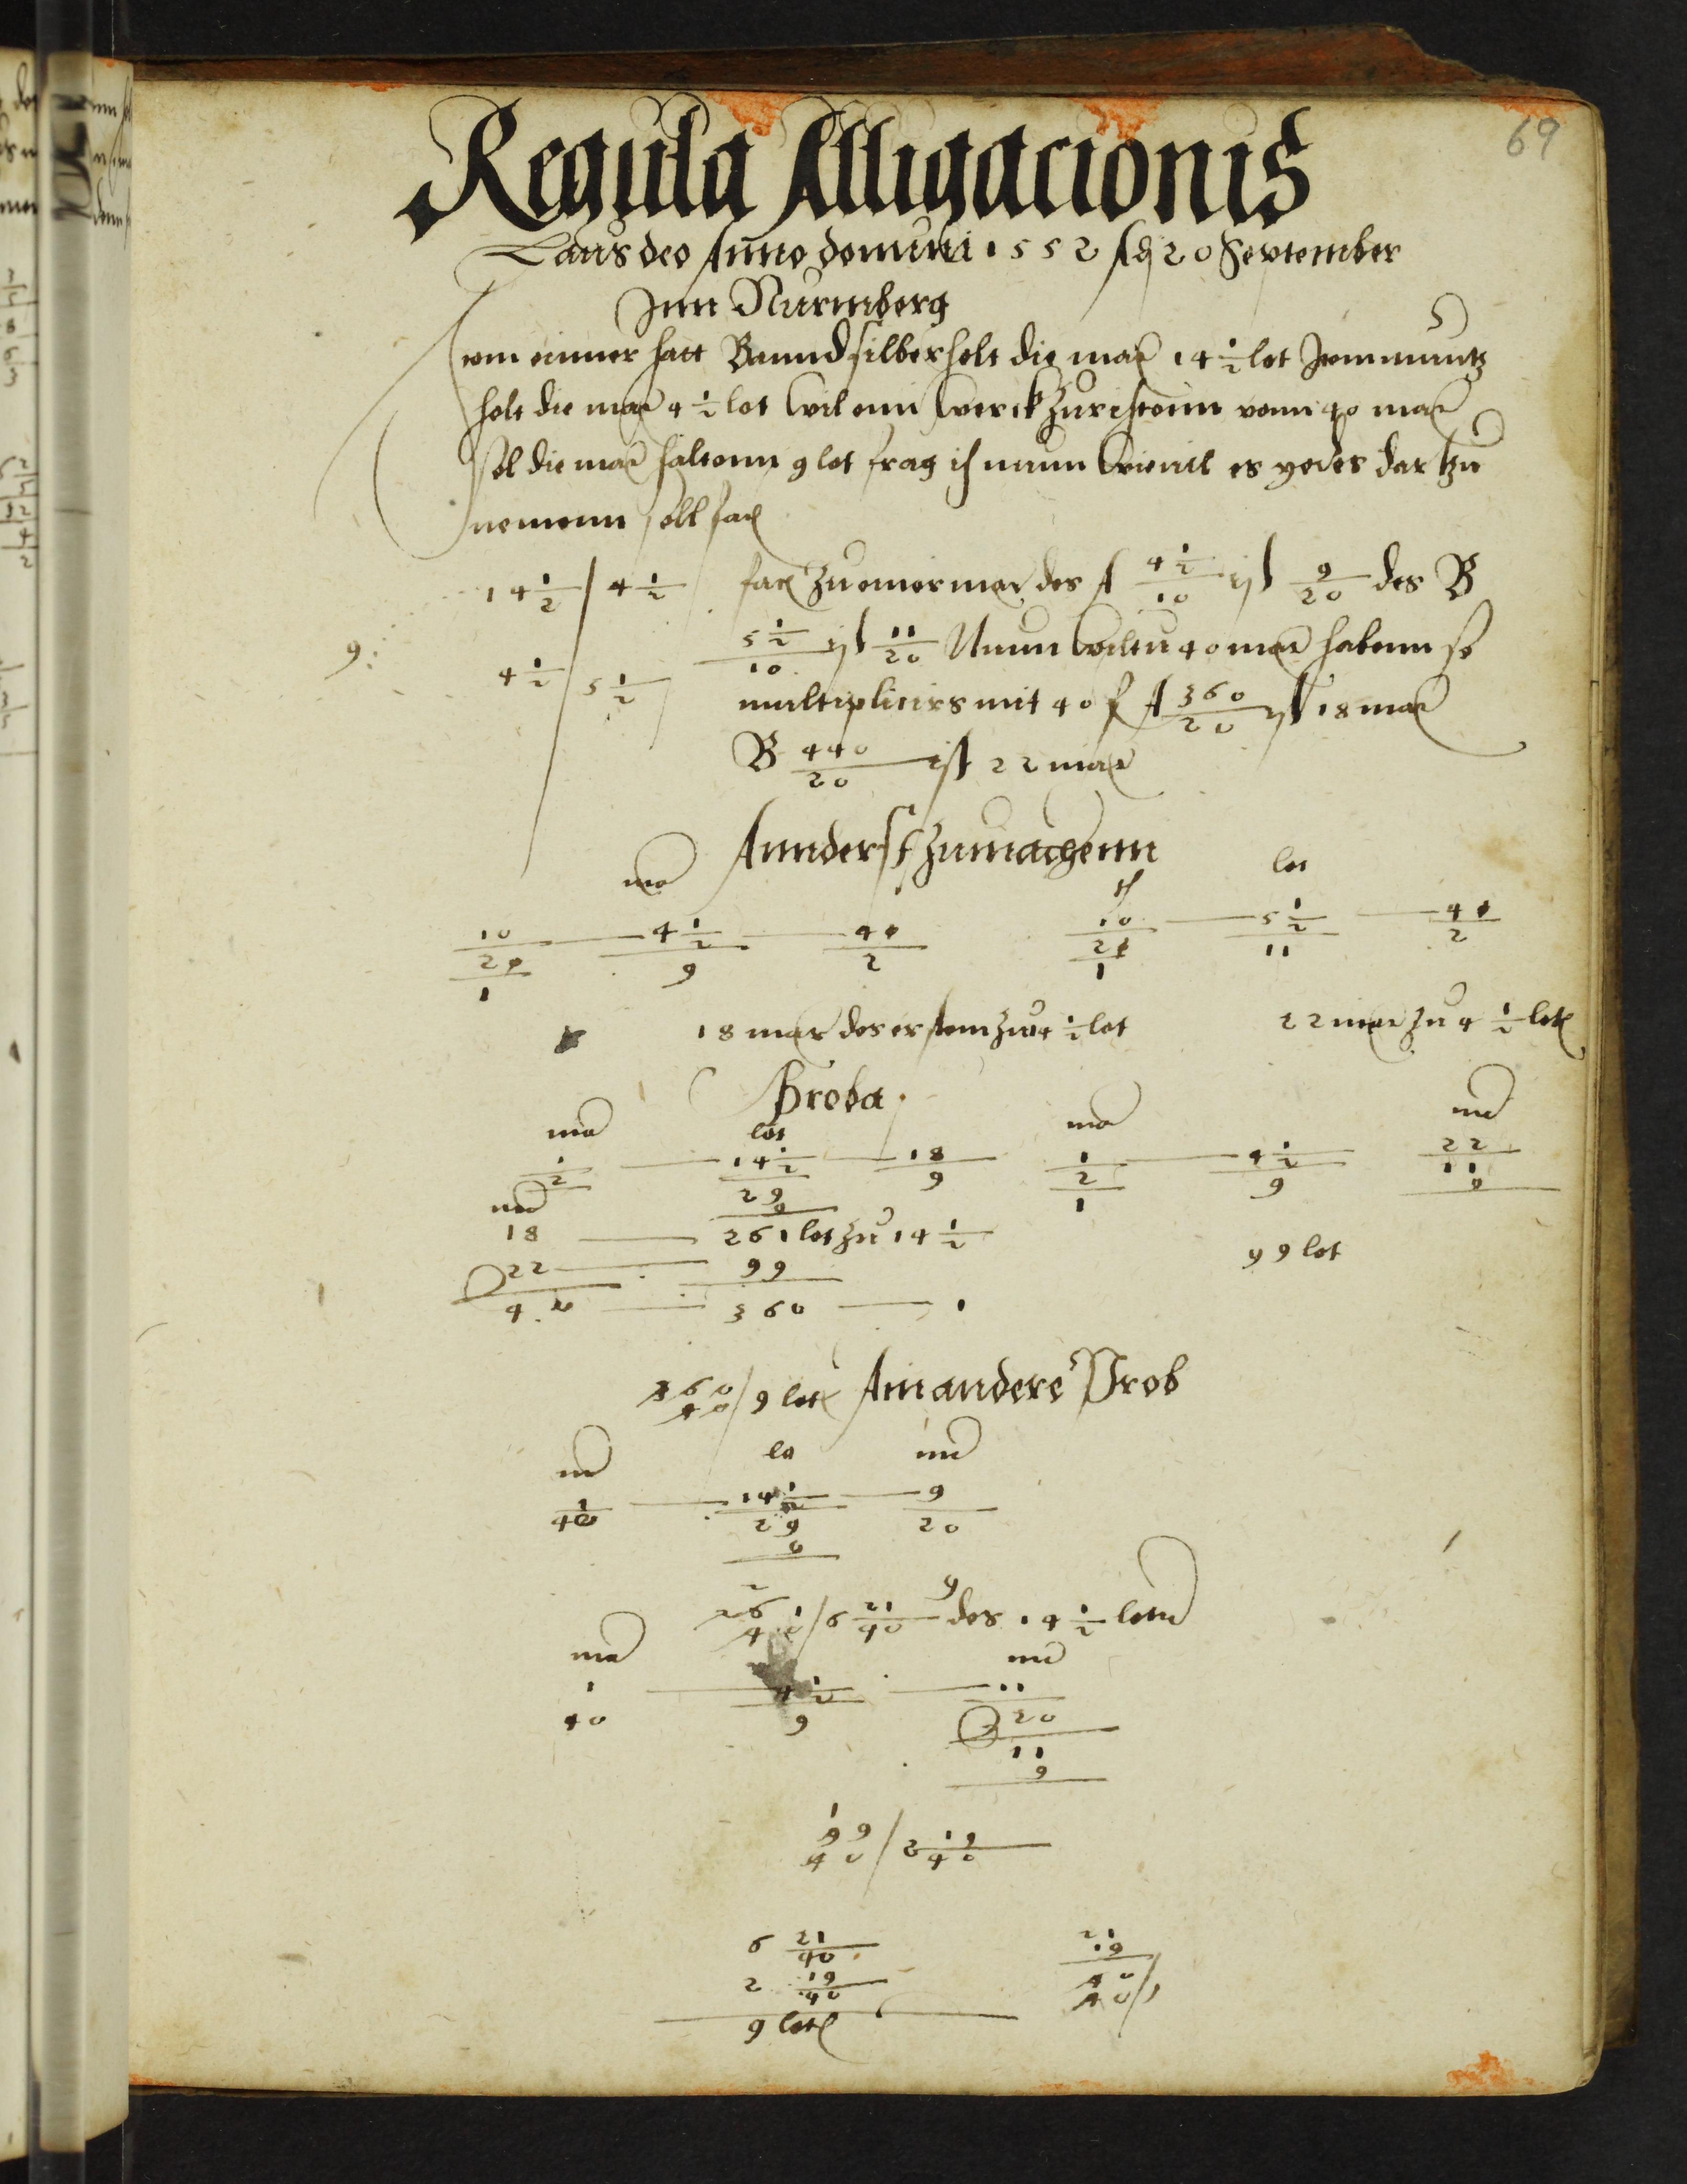 69
Regula Alligacionis
Laus deo Anno domini 1552 Ady 20 September
Inn Nurmberg
Item einner hatt Brannd silber helt die mar 14 1/2 lot Item muntz
helt die mar 4 1/2 lot wil ein werck zurichtenn vonn 40 mar
sol die mar haltenn 9 lot frag ich nunn wieuil er yedes dar zu
nemenn soll fac
14 1/2 / 4 1/2 fac zu einer mar des A 4 1/2 / 10 ist 9/20 des B
9 : 4 1/2 / 5 1/2 5 1/2 / 10 ist 11/20 Nunn wiltu 40 mar habenn so
multiplicirs mit 40 f A 360/20 ist 18 mar
B 440/20 ist 22 mar
Annderst zumachenn
ma lot
10 — 4 1/2 — 40 10 — 5 1/2 — 40
20 9 2 20 11 2
1 1
18 mar des erstenn zu 14 1/2 lot 22 mar zu 4 1/2 lot
Broba
ma lot ma ma
1 — 14 1/2 — 18 1 — 4 1/2 — 22
2 29 9 2 9 11
ma 9 1 9
18 — 261 lot zu 14 1/2
22 — 99 99 lot
40 — 360 — 1
360
40 / 9 lot Ain andere Prob
ma lo ma
1 — 14 1/2 — 9
40 29 20
9
2
261
40 / 6 21/40 des 14 1/2 lot
ma ma
1 — 4 1/2 — 11
40 9 20
11
9
1
99
40 / 2 19/40
6 21/40 21
2 19/40 19
9 lot 40
40 / 1